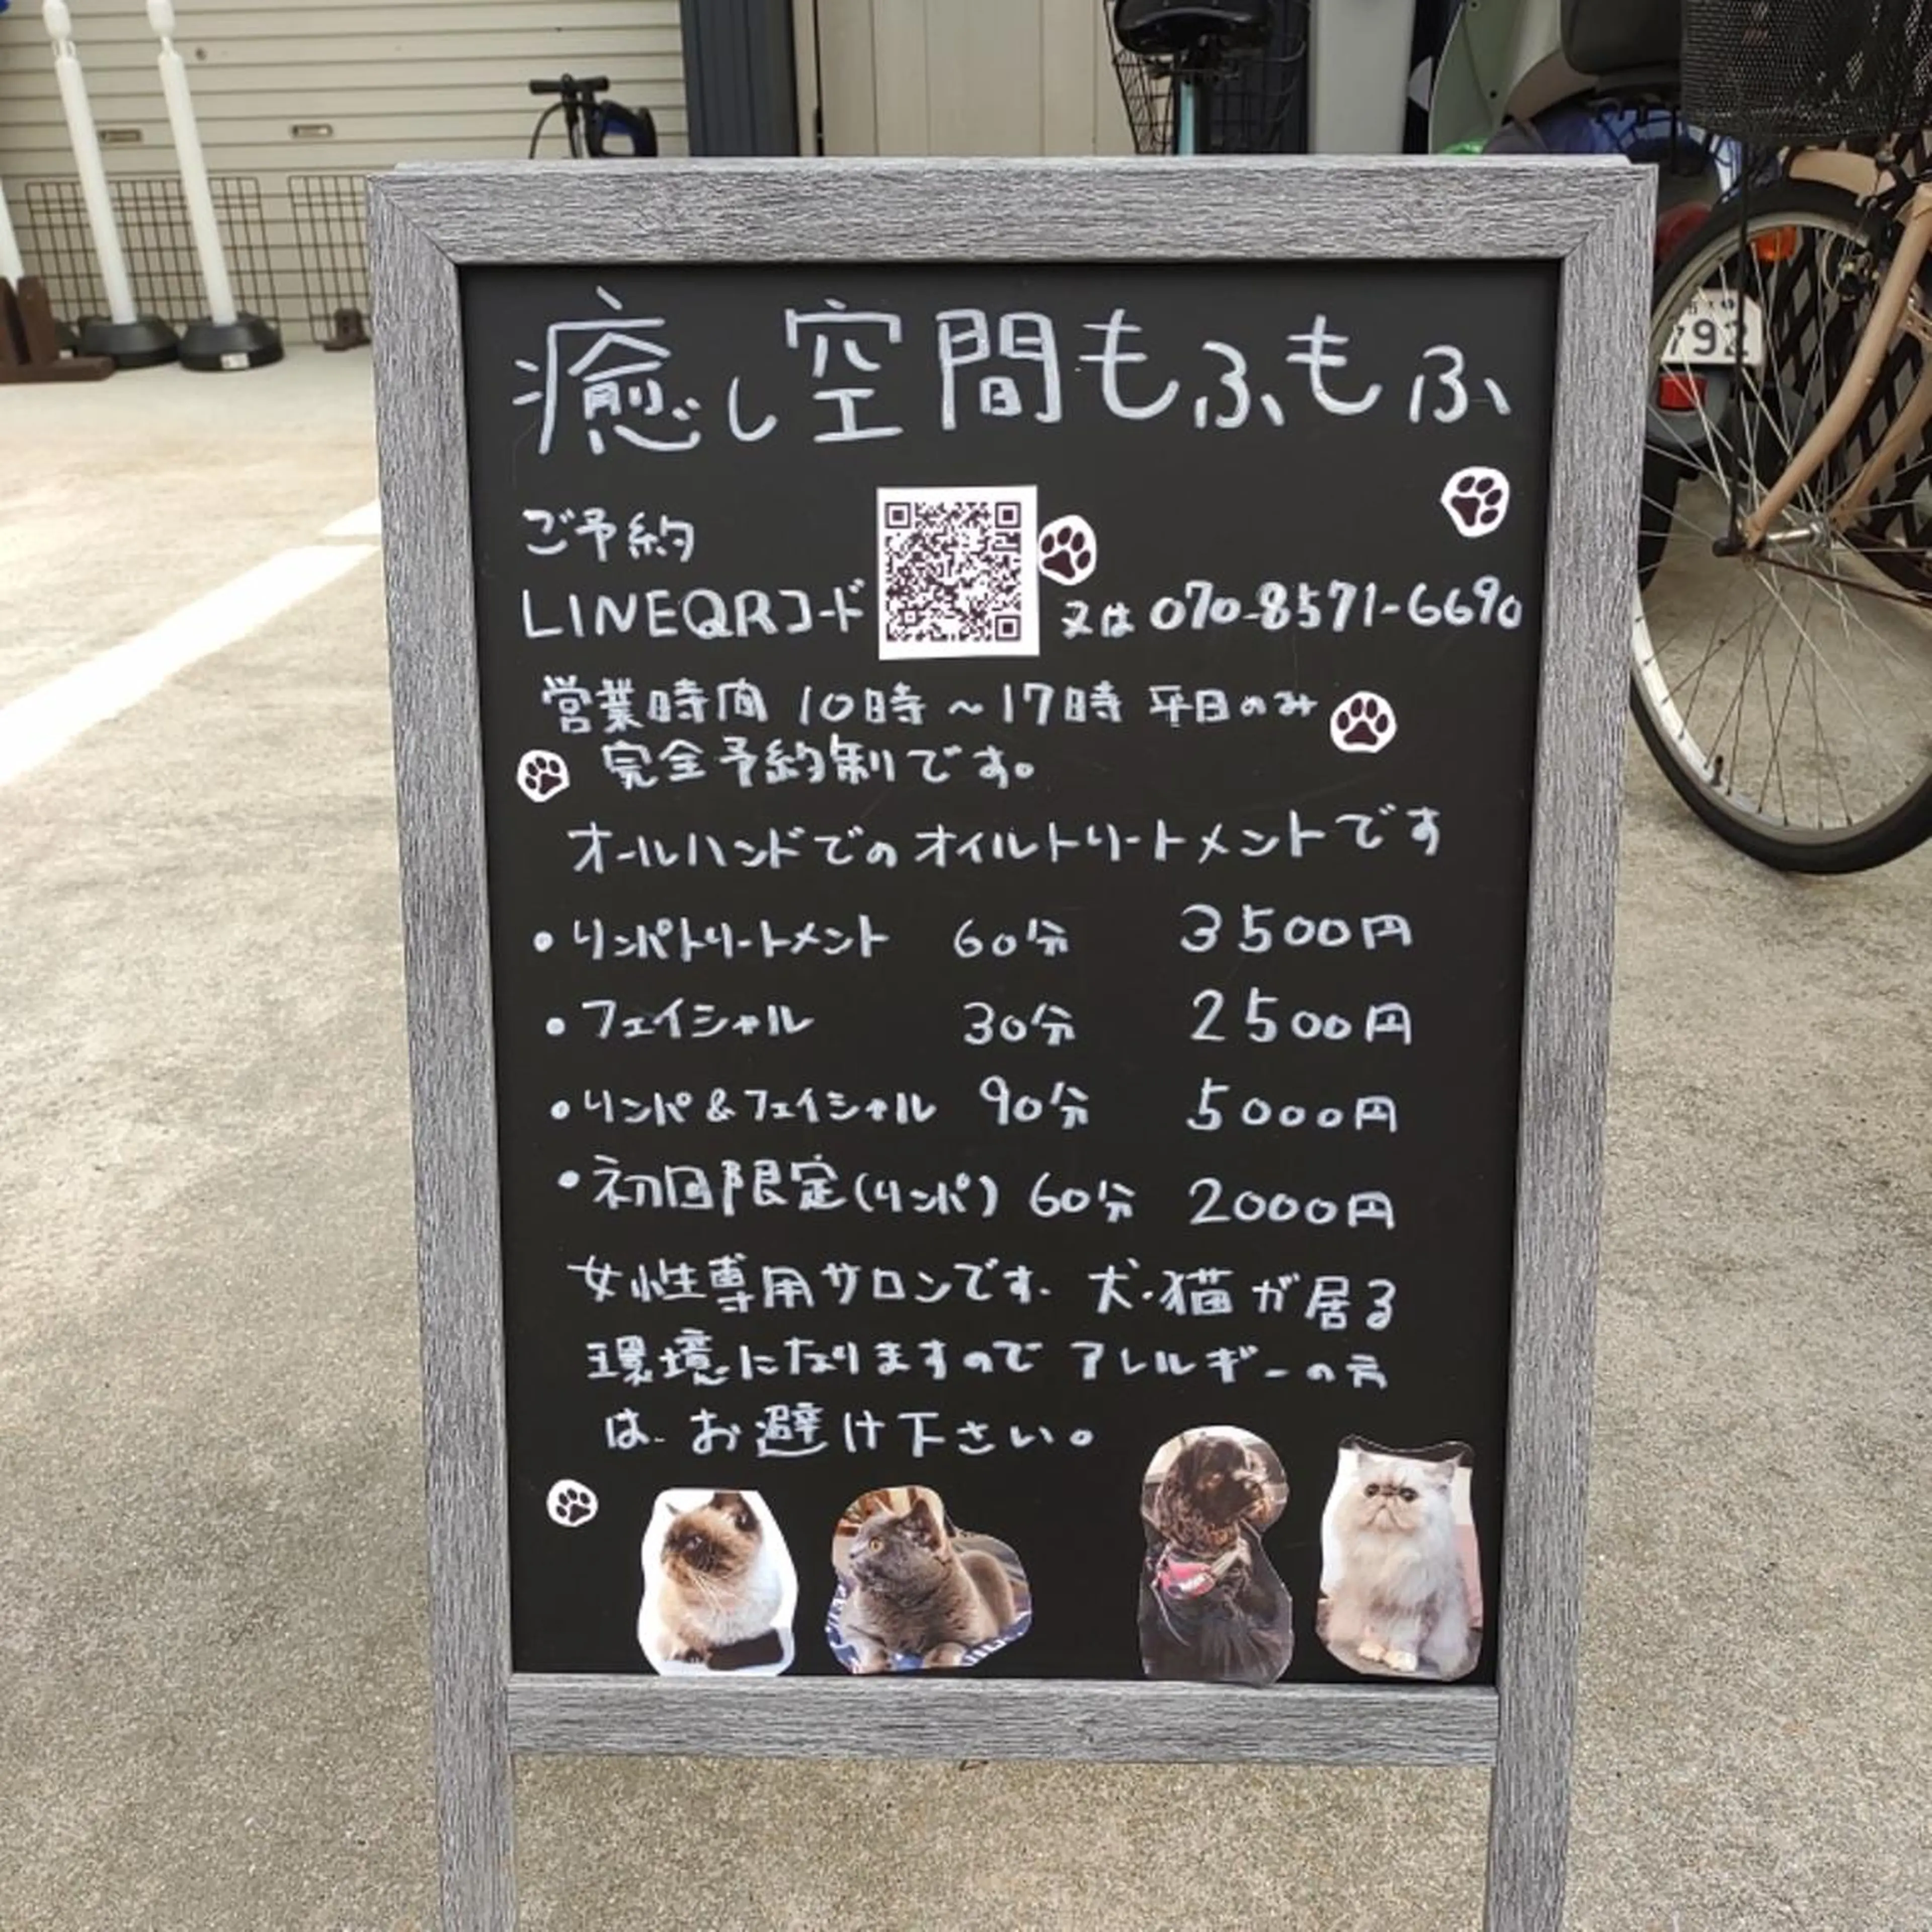 癒し空間もふもふ
ご予約
LINEQRコード 又は 070-8571-6690
営業時間 10時~17時 平日のみ
完全予約制です。
オールハンドでのオイルトリートメントです
・リンパトリートメント 60分 3500円
・フェイシャル 30分 2500円
・リンパ&フェイシャル 90分 5000円
・初回限定(リンパ) 60分 2000円
女性専用サロンです. 犬・猫が居る
環境になりますので アレルギーの方
は. お避け下さい。
792